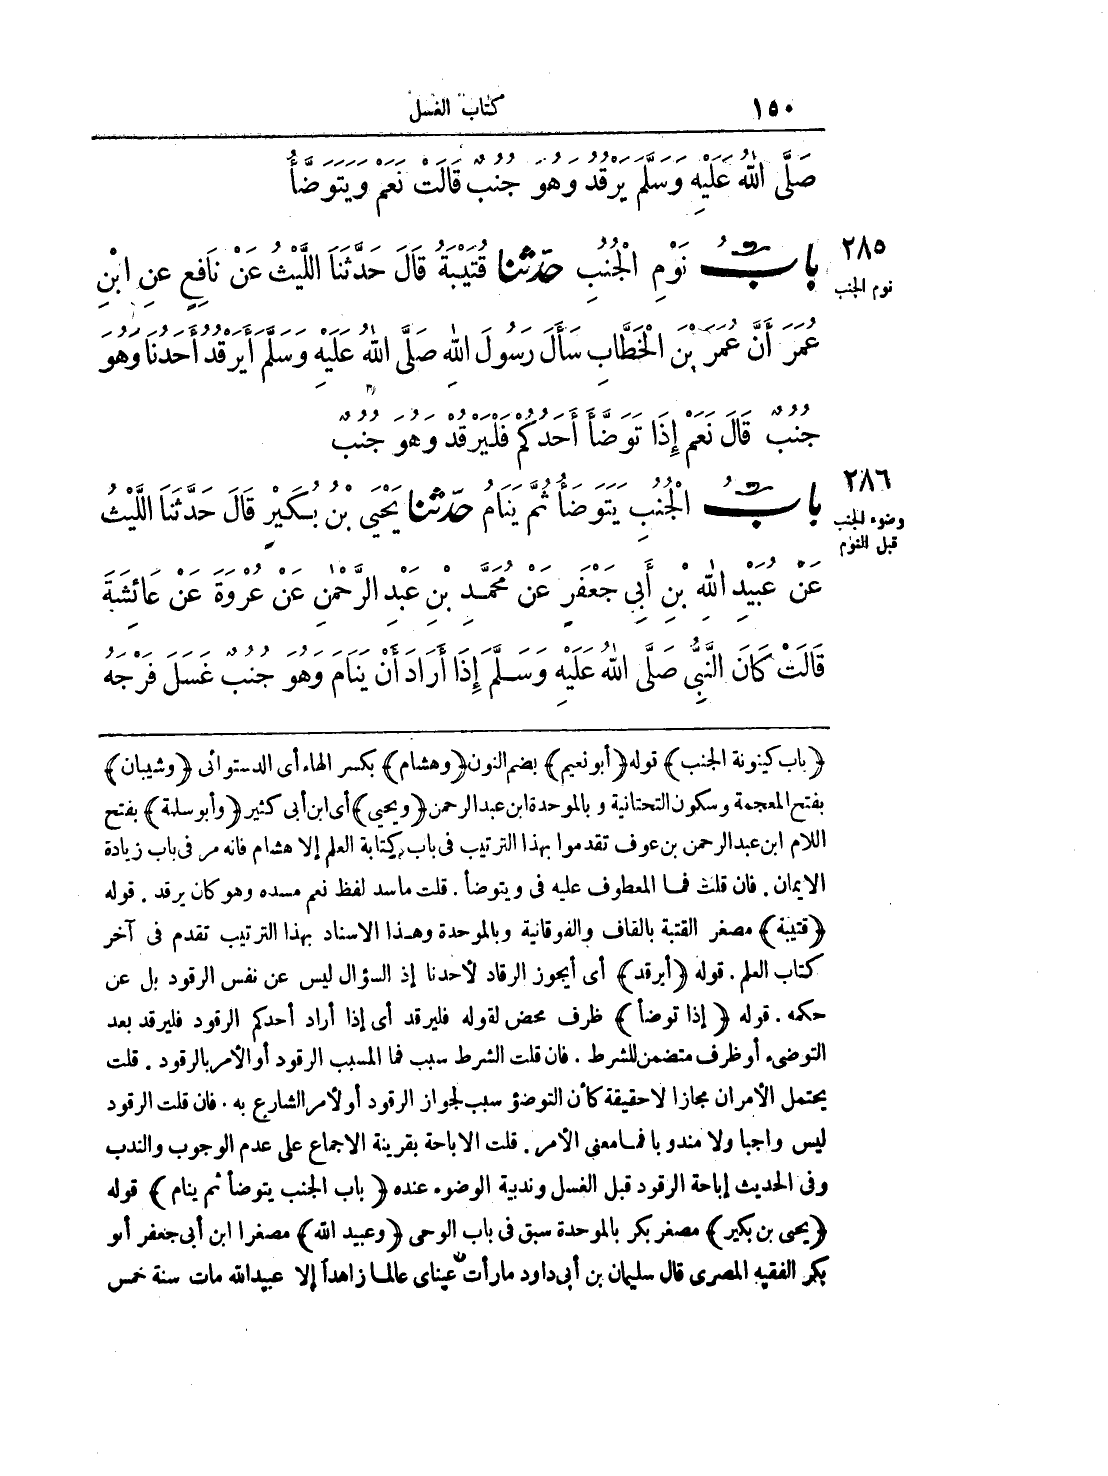 ١٥٠ كتاب الغسل
صَلَّى اللهُ عَلَيْهِ وَسَلَّمَ يَرْقُدُ وَهُوَ جُنُبٌ قَالَتْ نَعَمْ وَيَتَوَضَّأُ
٢٨٥ بابٌ نَوْمِ الْجُنُبِ حَدَّثنا قُتَيْبَةُ قَالَ حَدَّثَنَا اللَّيْثُ عَنْ نَافِعٍ عَنِ ابْنِ
نوم الجنب
عُمَرَ أَنَّ عُمَرَ بْنَ الْخَطَّابِ سَأَلَ رَسُولَ اللهِ صَلَّى اللهُ عَلَيْهِ وَسَلَّمَ أَيَرْقُدُ أَحَدُنَا وَهُوَ
جُنُبٌ قَالَ نَعَمْ إِذَا تَوَضَّأَ أَحَدُكُمْ فَلْيَرْقُدْ وَهُوَ جُنُبٌ
٢٨٦ بابُ الْجُنُبِ يَتَوَضَأُ ثُمَّ يَنَامُ حَدَّثنا يَحْيَى بْنُ بُكَيْرٍ قَالَ حَدَّثَنَا اللَّيْثُ
وضوء الجنب
قبل النوم
عَنْ عُبَيْدِ اللهِ بْنِ أَبِي جَعْفَرٍ عَنْ مُحَمَّدِ بْنِ عَبْدِ الرَّحْمٰنِ عَنْ عُرْوَةَ عَنْ عَائِشَةَ
قَالَتْ كَانَ النَّبِيُّ صَلَّى اللهُ عَلَيْهِ وَسَلَّمَ إِذَا أَرَادَ أَنْ يَنَامَ وَهُوَ جُنُبٌ غَسَلَ فَرْجَهُ
﴿باب كينونة الجنب﴾ قوله ﴿أبو نعيم﴾ بضم النون ﴿وهشام﴾ بكسر الهاء أى الدستوائى ﴿وشيبان﴾
بفتح المعجمة وسكون التحتانية وبالموحدة ابن عبد الرحمن ﴿ويحيى﴾ أى ابن أبى كثير ﴿وأبو سلمة﴾ بفتح
اللام ابن عبد الرحمن بن عوف تقدموا بهذا الترتيب فى باب كتابة العلم إلا هشام فانه مر فى باب زيادة
الايمان. فان قلت فما المعطوف عليه فى ويتوضأ. قلت ماسد لفظ نعم مسده وهو كان يرقد. قوله
﴿قتيبة﴾ مصغر القتبة بالقاف والفوقانية وبالموحدة وهذا الاسناد بهذا الترتيب تقدم فى آخر
كتاب العلم. قوله ﴿أيرقد﴾ أى أيجوز الرقاد لأحدنا إذ السؤال ليس عن نفس الرقود بل عن
حكمه. قوله ﴿إذا توضأ﴾ ظرف محض لقوله فليرقد أى إذا أراد أحدكم الرقود فليرقد بعد
التوضىء أو ظرف متضمن للشرط. فان قلت الشرط سبب فما المسبب الرقود أو الأمر بالرقود. قلت
يحتمل الأمران مجازا لا حقيقة كأن التوضؤ سبب لجواز الرقود أو لأمر الشارع به. فان قلت الرقود
ليس واجبا ولا مندوبا فما معنى الأمر. قلت الاباحة بقرينة الاجماع على عدم الوجوب والندب
وفى الحديث إباحة الرقود قبل الغسل وندبية الوضوء عنده ﴿باب الجنب يتوضأ ثم ينام﴾ قوله
﴿يحيى بن بكير﴾ مصغر بكر بالموحدة سبق فى باب الوحى ﴿وعبيد الله﴾ مصغرا ابن أبى جعفر أبو
بكر الفقيه المصرى قال سليمان بن أبى داود مارأت عيناى عالما زاهداً إلا عبيد الله مات سنة خمس